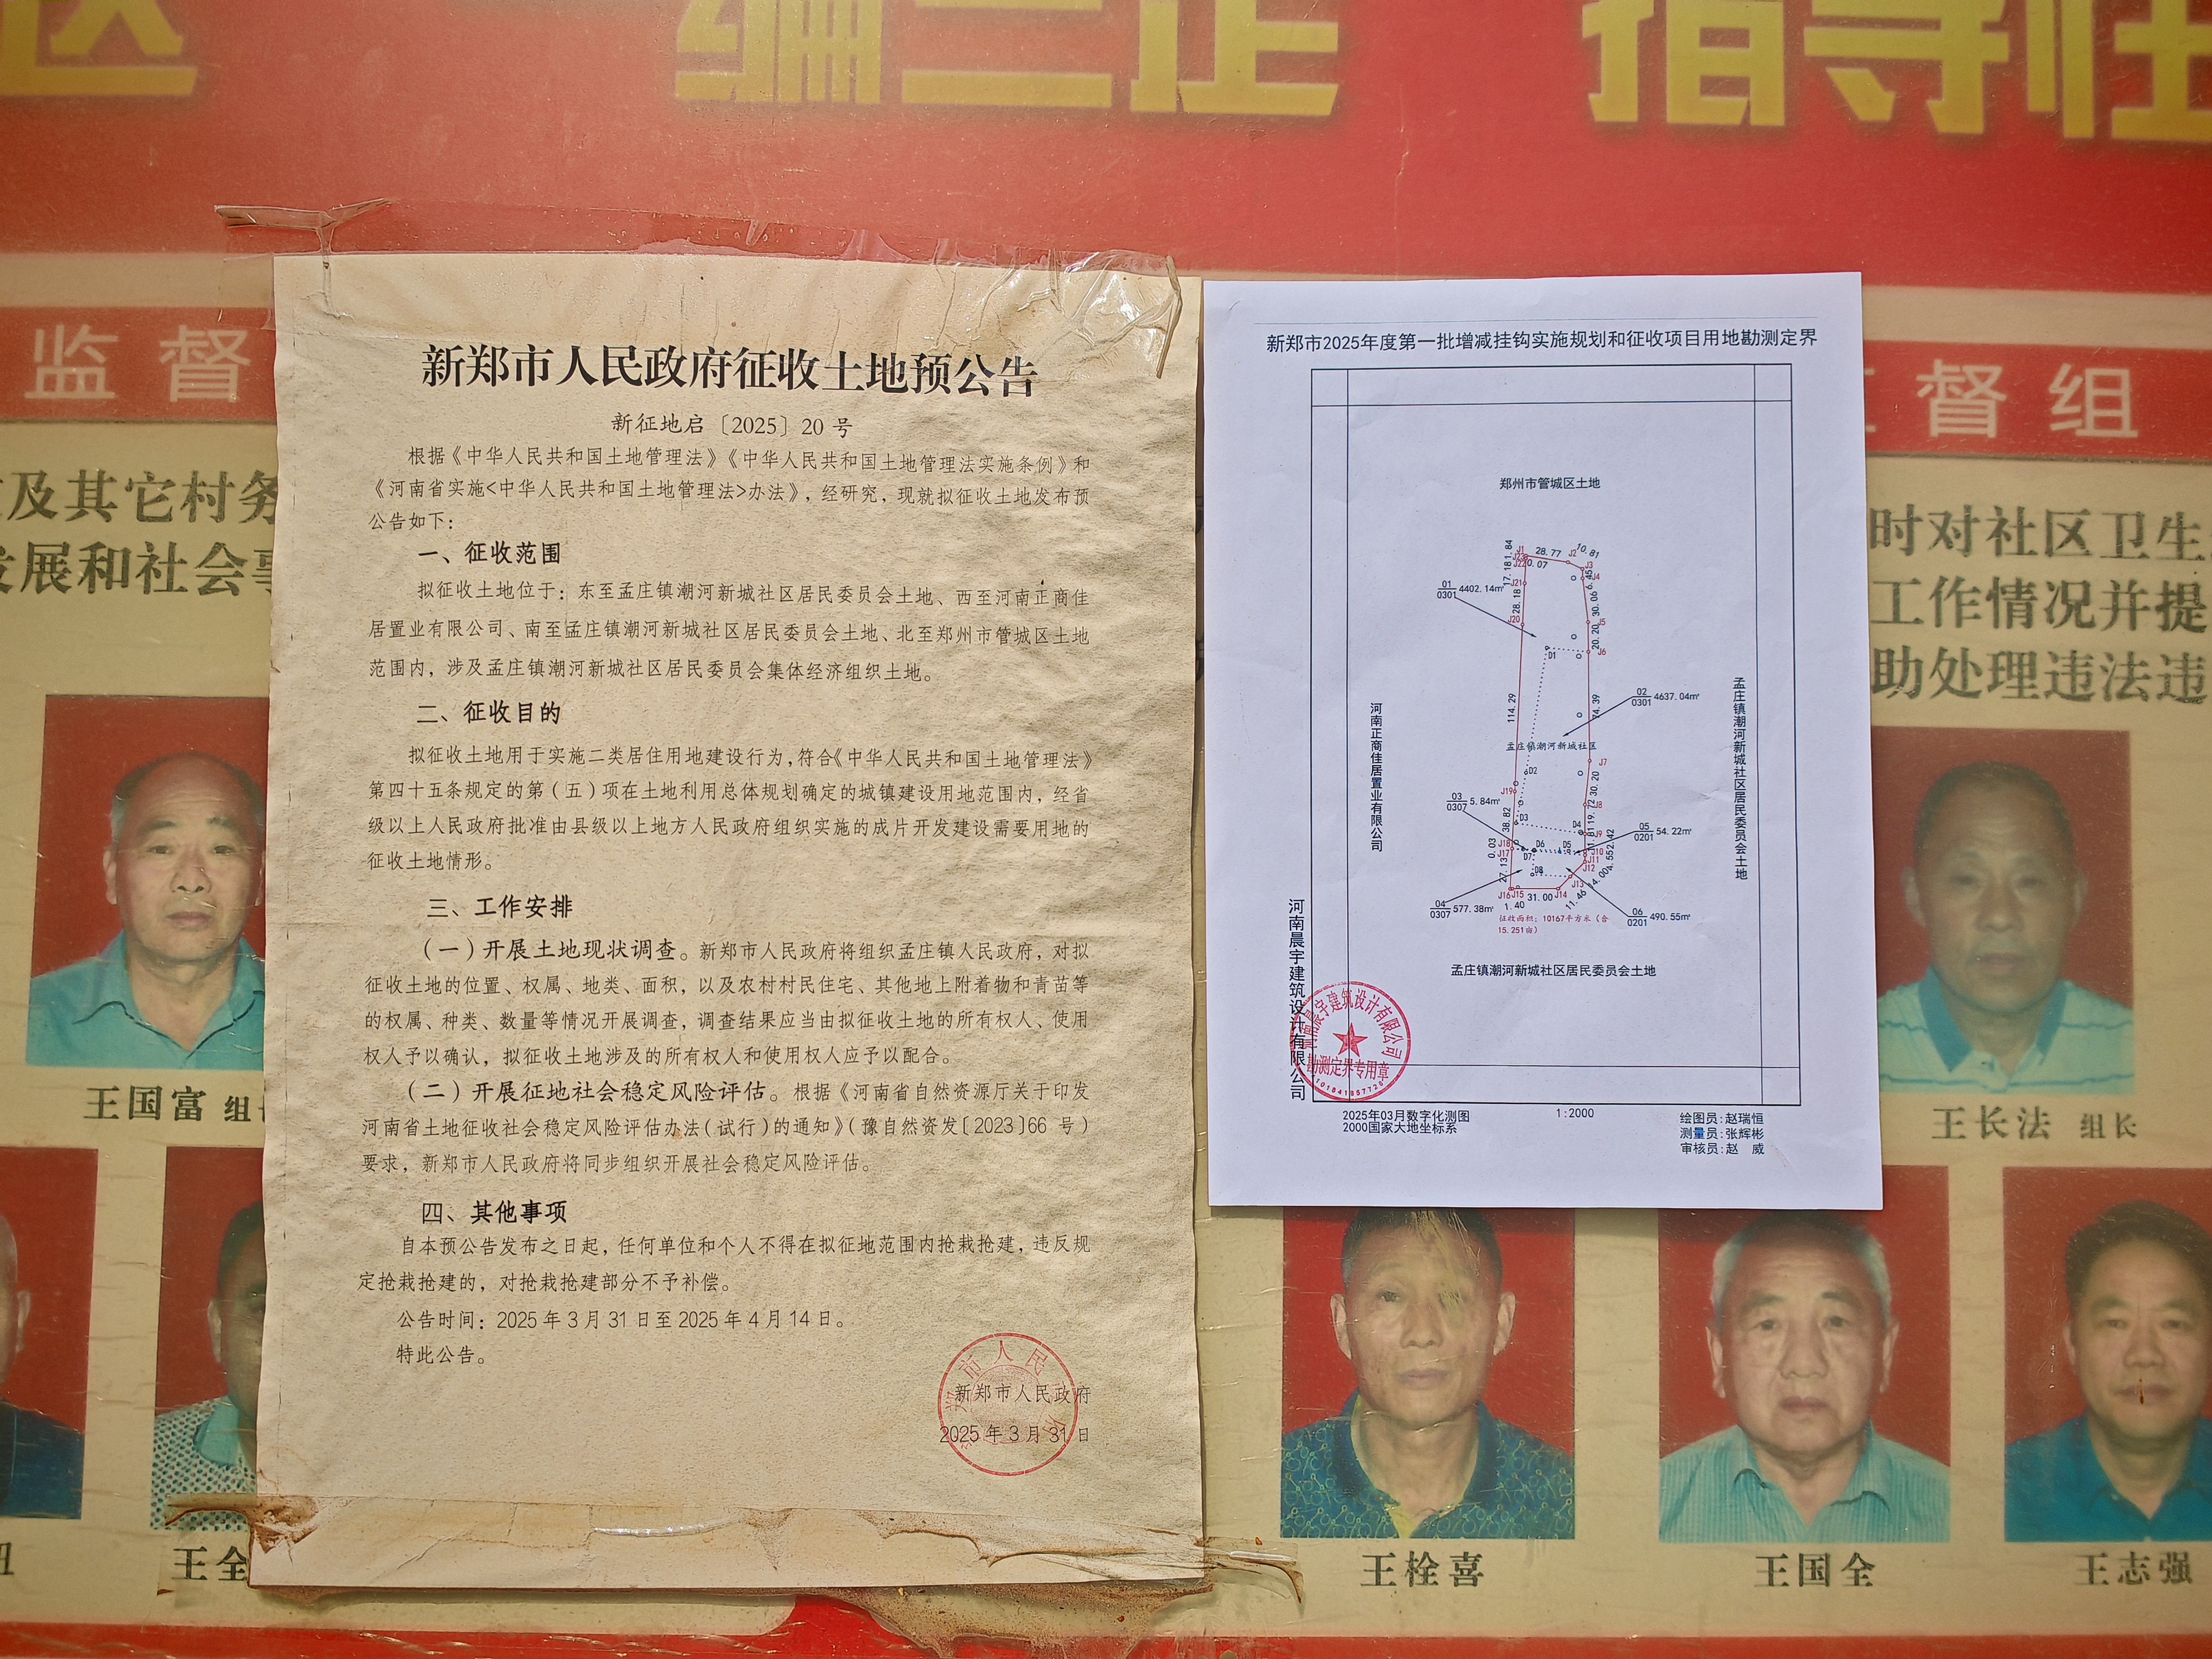 编三正
指导
监督
督组
及其它村务
发展和社会事
时对社区卫生
工作情况并提
助处理违法违
新郑市人民政府征收土地预公告
新征地启〔2025〕20 号
根据《中华人民共和国土地管理法》《中华人民共和国土地管理法实施条例》和
《河南省实施<中华人民共和国土地管理法>办法》，经研究，现就拟征收土地发布预
公告如下：
一、征收范围
拟征收土地位于：东至孟庄镇潮河新城社区居民委员会土地、西至河南正商佳
居置业有限公司、南至孟庄镇潮河新城社区居民委员会土地、北至郑州市管城区土地
范围内，涉及孟庄镇潮河新城社区居民委员会集体经济组织土地。
二、征收目的
拟征收土地用于实施二类居住用地建设行为，符合《中华人民共和国土地管理法》
第四十五条规定的第（五）项在土地利用总体规划确定的城镇建设用地范围内，经省
级以上人民政府批准由县级以上地方人民政府组织实施的成片开发建设需要用地的
征收土地情形。
三、工作安排
（一）开展土地现状调查。新郑市人民政府将组织孟庄镇人民政府，对拟
征收土地的位置、权属、地类、面积，以及农村村民住宅、其他地上附着物和青苗等
的权属、种类、数量等情况开展调查，调查结果应当由拟征收土地的所有权人、使用
权人予以确认，拟征收土地涉及的所有权人和使用权人应予以配合。
（二）开展征地社会稳定风险评估。根据《河南省自然资源厅关于印发
河南省土地征收社会稳定风险评估办法（试行）的通知》（豫自然资发〔2023〕66 号）
要求，新郑市人民政府将同步组织开展社会稳定风险评估。
四、其他事项
自本预公告发布之日起，任何单位和个人不得在拟征地范围内抢栽抢建，违反规
定抢栽抢建的，对抢栽抢建部分不予补偿。
公告时间：2025 年 3 月 31 日至 2025 年 4 月 14 日。
特此公告。
新郑市人民政府
2025 年 3 月 31 日
新郑市2025年度第一批增减挂钩实施规划和征收项目用地勘测定界
郑州市管城区土地
J1
28.77
J2
10.81
1.84
J3
J4
6.45
0.07
17.18
J21
28.18
J20
30.06
J5
20.20
J6
01
0301
4402.14㎡
D1
02
0301
4637.04㎡
74.39
114.29
孟庄镇潮河新城社区
J7
D2
30.20
J19
J8
03
0307
5.84㎡
D3
D4
19.72
J9
38.82
05
0201
54.22㎡
J18
J17
0.03
D6
D5
D7
J10
J11
J12
D8
27.13
J13
J16
J15
J14
31.00
1.40
11.46
04
0307
577.38㎡
06
0201
490.55㎡
征收面积：10167平方米（合
15.251亩）
河南正商佳居置业有限公司
孟庄镇潮河新城社区居民委员会土地
孟庄镇潮河新城社区居民委员会土地
河南晨宇建筑设计有限公司
河南晨宇建筑设计有限公司
勘测定界专用章
2025年03月数字化测图
2000国家大地坐标系
1:2000
绘图员:赵瑞恒
测量员:张辉彬
审核员:赵 威
王国富 组长
王长法 组长
王全
王栓喜
王国全
王志强